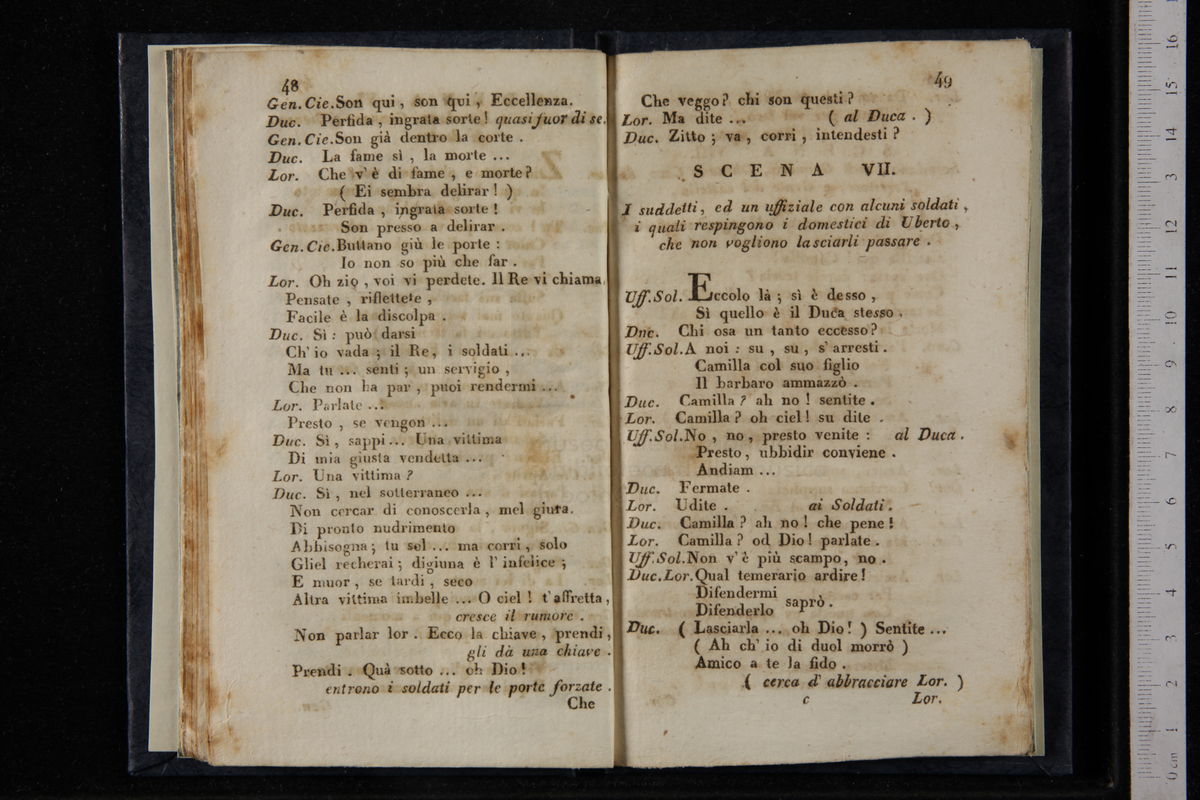 48
Gen. Cie. Son qui , son qui , Eccellenza.
Duc. Perfida , ingrata sorte ! quasi fuor di se.
Gen. Cie. Son già dentro la corte .
Duc. La fame sì , la morte ...
Lor. Che v' è di fame , e morte ?
( Ei sembra delirar ! )
Duc. Perfida , ingrata sorte !
Son presso a delirar .
Gen. Cie. Buttano giù le porte :
Io non so più che far .
Lor. Oh zio , voi vi perdete. Il Re vi chiama.
Pensate , riflettete ,
Facile è la discolpa .
Duc. Sì : può darsi
Ch' io vada ; il Re, i soldati ...
Ma tu ... senti ; un servigio ,
Che non ha par , puoi rendermi ...
Lor. Parlate ...
Presto , se vengon ...
Duc. Sì , sappi ... Una vittima
Di mia giusta vendetta ...
Lor. Una vittima ?
Duc. Sì , nel sotterraneo ...
Non cercar di conoscerla , mel giura.
Di pronto nudrimento
Abbisogna ; tu sol ... ma corri , solo
Gliel recherai ; digiuna è l' infelice ;
E muor , se tardi , seco
Altra vittima imbelle ... O ciel ! t'affretta ,
cresce il rumore .
Non parlar lor . Ecco la chiave , prendi ,
gli dà una chiave .
Prendi . Quà sotto ... oh Dio !
entrono i soldati per le porte forzate .
Che
49
Che veggo ? chi son questi ?
Lor. Ma dite ... ( al Duca . )
Duc. Zitto ; va , corri , intendesti ?
SCENA VII.
I suddetti , ed un uffiziale con alcuni soldati ,
i quali respingono i domestici di Uberto ,
che non vogliono lasciarli passare .
Uff. Sol. Eccolo là ; sì è desso ,
Sì quello è il Duca stesso .
Duc. Chi osa un tanto eccesso ?
Uff. Sol. A noi : su , su , s' arresti .
Camilla col suo figlio
Il barbaro ammazzò .
Duc. Camilla ? ah no ! sentite .
Lor. Camilla ? oh ciel ! su dite .
Uff. Sol. No , no , presto venite : al Duca .
Presto , ubbidir conviene .
Andiam ...
Duc. Fermate .
Lor. Udite . ai Soldati .
Duc. Camilla ? ah no ! che pene !
Lor. Camilla ? od Dio ! parlate .
Uff. Sol. Non v' è più scampo, no .
Duc. Lor. Qual temerario ardire !
Difendermi
Difenderlo saprò .
Duc. ( Lasciarla ... oh Dio ! ) Sentite ...
( Ah ch' io di duol morrò )
Amico a te la fido .
( cerca d' abbracciare Lor. )
c Lor.
0 cm 1 2 3 4 5 6 7 8 9 10 11 12 13 14 15 16